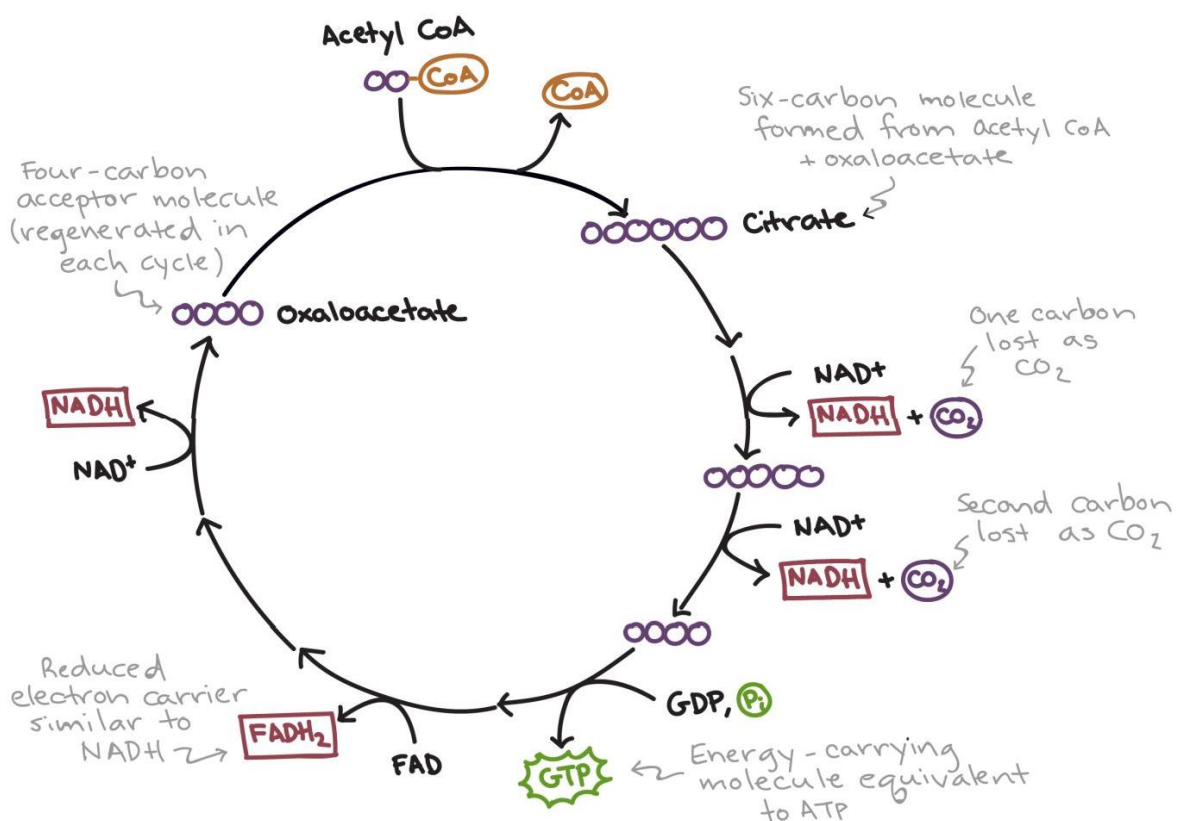 Acetyl CoA
CoA
CoA
Six-carbon molecule
formed from acetyl CoA
+ oxaloacetate
Citrate
Four-carbon
acceptor molecule
(regenerated in
each cycle)
Oxaloacetate
One carbon
lost as
CO2
NAD+
NADH + CO2
NADH
NAD+
Second carbon
lost as CO2
NAD+
NADH + CO2
GDP, Pi
GTP
Energy-carrying
molecule equivalent
to ATP
Reduced
electron carrier
similar to
NADH
FADH2
FAD